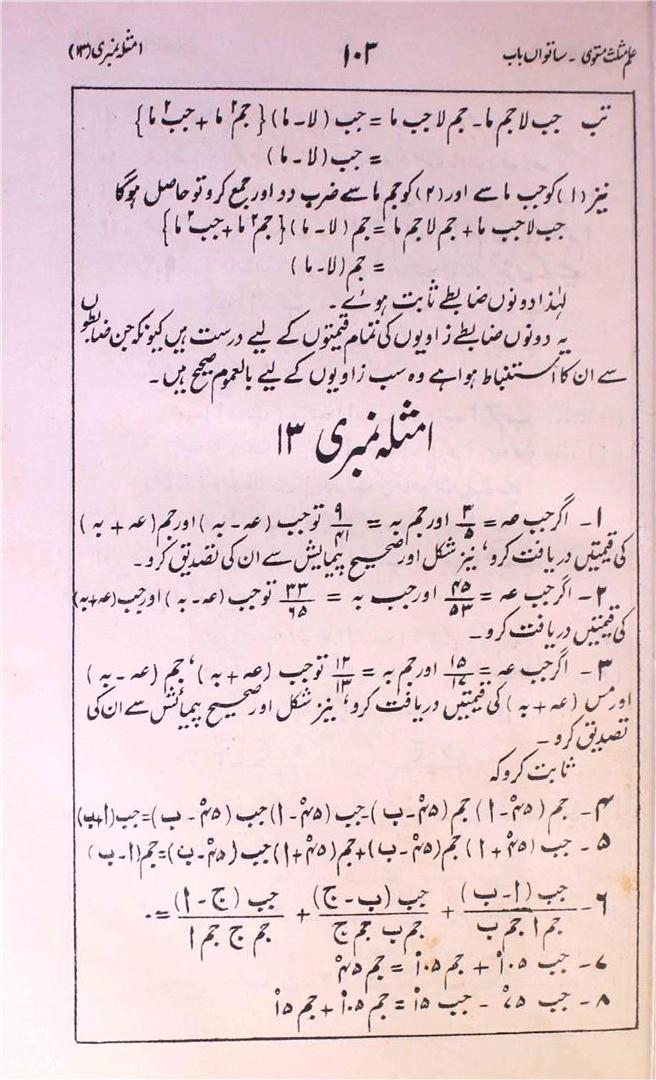 علم مثلث مستوی ۔ ساتواں باب ۱۰۳ امثلہ نمبری (۱۳)
تب جب لا جم ما ۔ جم لا جب ما = جب (لا ۔ ما) {جم۲ ما + جب۲ ما}
= جب (لا ۔ ما)
نیز (۱) کو جب ما سے اور (۲) کو جم ما سے ضرب دو اور جمع کرو تو حاصل ہوگا
جب لا جب ما + جم لا جم ما = جم (لا ۔ ما) {جم۲ ما + جب۲ ما}
= جم (لا ۔ ما)
لہٰذا دونوں ضابطے ثابت ہوئے ۔
یہ دونوں ضابطے زاویوں کی تمام قیمتوں کے لیے درست ہیں کیونکہ جن ضابطوں
سے ان کا استنباط ہوا ہے وہ سب زاویوں کے لیے بالعموم صحیح ہیں ۔
امثلہ نمبری ۱۳
۱۔ اگر جب عہ = ۳/۵ اور جم بہ = ۹/۴۱ تو جب (عہ ۔ بہ) اور جم (عہ + بہ)
کی قیمتیں دریافت کرو، نیز شکل اور صحیح پیمایش سے ان کی تصدیق کرو ۔
۲۔ اگر جب عہ = ۴۵/۵۳ اور جب بہ = ۳۳/۶۵ تو جب (عہ ۔ بہ) اور جب (عہ + بہ)
کی قیمتیں دریافت کرو ۔
۳۔ اگر جب عہ = ۱۵/۱۷ اور جم بہ = ۱۲/۱۳ تو جب (عہ + بہ)، جم (عہ ۔ بہ)
اور مس (عہ + بہ) کی قیمتیں دریافت کرو، نیز شکل اور صحیح پیمائش سے ان کی
تصدیق کرو ۔
ثابت کرو کہ
۴۔ جم (۴۵° ۔ ا) جم (۴۵° ۔ ب) ۔ جب (۴۵° ۔ ا) جب (۴۵° ۔ ب) = جب (ا + ب)
۵۔ جب (۴۵° + ا) جم (۴۵° ۔ ب) + جم (۴۵° + ا) جب (۴۵° ۔ ب) = جم (ا ۔ ب)
۶۔ جب (ا ۔ ب)/جم ا جم ب + جب (ب ۔ ج)/جم ب جم ج + جب (ج ۔ ا)/جم ج جم ا = ۰
۷۔ جب ۱۰۵° + جم ۱۰۵° = جم ۴۵°
۸۔ جب ۷۵° ۔ جب ۱۵° = جم ۱۰۵° + جم ۱۵°